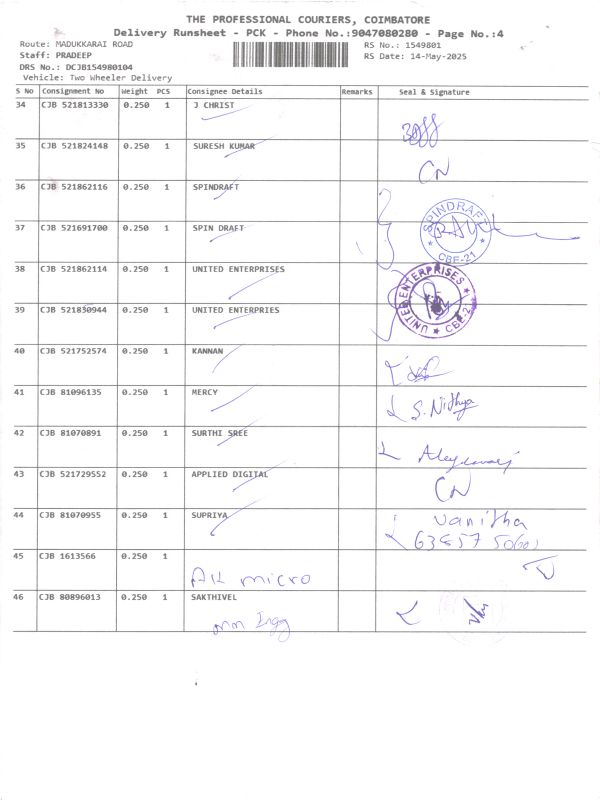 THE PROFESSIONAL COURIERS, COIMBATORE
Delivery Runsheet - PCK - Phone No.:9047080280 - Page No.:4
Route: MADUKKARAI ROAD RS No.: 1549801
Staff: PRADEEP RS Date: 14-May-2025
DRS No.: DCJB154980104
Vehicle: Two Wheeler Delivery
S No Consignment No Weight PCS Consignee Details Remarks Seal & Signature
34 CJB 521813330 0.250 1 J CHRIST
35 CJB 521824148 0.250 1 SURESH KUMAR
CN
36 CJB 521862116 0.250 1 SPINDRAFT
SPINDRAFT
37 CJB 521691700 0.250 1 SPIN DRAFT
CBE-21
38 CJB 521862114 0.250 1 UNITED ENTERPRISES
UNITED ENTERPRISES
39 CJB 521830944 0.250 1 UNITED ENTERPRIES
40 CJB 521752574 0.250 1 KANNAN
41 CJB 81096135 0.250 1 MERCY
S. Nithya
42 CJB 81070891 0.250 1 SURTHI SREE
43 CJB 521729552 0.250 1 APPLIED DIGITAL
CN
44 CJB 81070955 0.250 1 SUPRIYA
Vanitha
45 CJB 1613566 0.250 1
AK micro
46 CJB 80896013 0.250 1 SAKTHIVEL